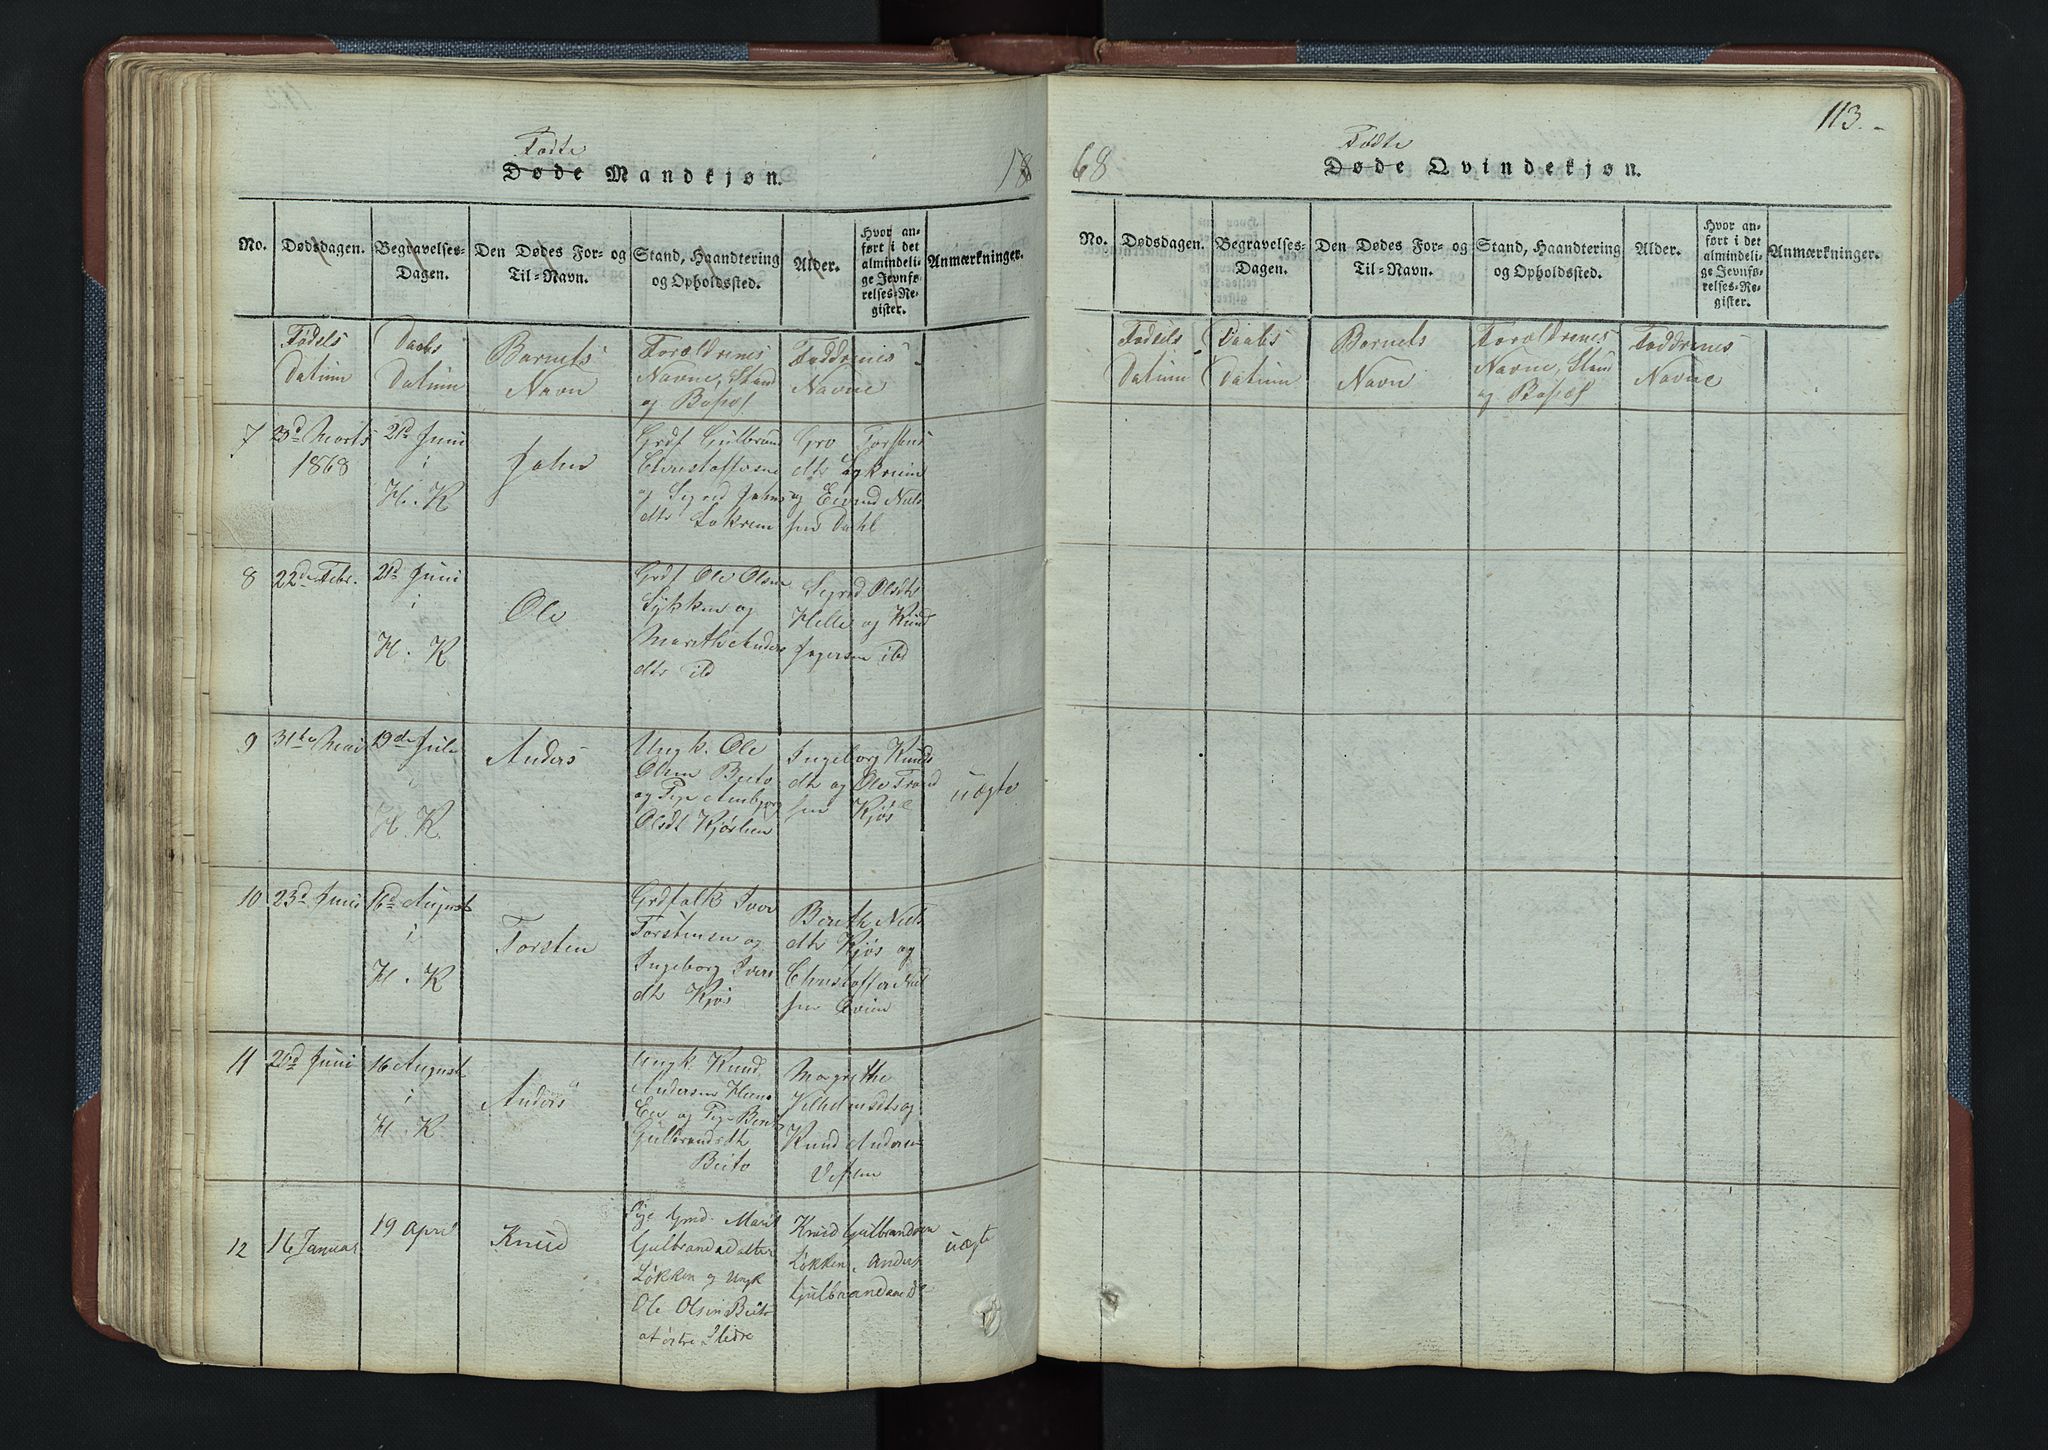 113.
Fødte
Døde Mandkjøn.
18
No.
Dødsdagen.
Begravelses-
Dagen.
Den Dødes For- og
Til-Navn.
Stand, Haandtering
og Opholdssted.
Alder.
Hvor an-
ført i det
almindeli-
ge Jevnfø-
relses-Re-
gister.
Anmærkninger.
Fødsels
Datum
Daabs
Datum
Barnets
Navn
Forældrenes
Navne, Stand
og Bopæl
Faddrenes
Navne
7
23d Marts
1868
21d Juni
i
H. K
John
Grdf Gulbrand
Christoffersen
og Sigrid Johns
dtr Løkrem
Gro Torstens
dtr Løkrem
og Eivind Niels
sen Dahl
8
22de Febr.
21d Juni
i
H. K
Ole
Grdf Ole Olsen
Løkken og
Marith Anders
dtr ibd
Sigrid Olsdtr
Helle og Knud
Ingersen ibd
9
31te Mai
19de Juli
H. K.
Anders
Ungk. Ole
Olsen Beito
og Pige Ambjørg
Olsdt Kjørlien
Ingeborg Knuds
dtr og Ole Trond
sen Kjøs
uægte
10
23d Juni
16d August
i
H. K
Torsten
Grdfolk Iver
Torstensen og
Ingeborg Ivers
dtr Kjøs
Berith Niels
dtr Kjøs og
Christoffer
sen Qvien
11
21d Juni
16 August
i
H. K
Anders
Ungk. Knud
Andersen
og Pige Berit
Gulbrandsdtr
Beito
Margrethe
Vilhelmsdtr og
Knud Andersen
12
16 Januar
19 April
Knud
Pige Marit
Gulbrandsdatter
Løkken og Ungk
Ole Olsen Beito
af østre Slidre
Knud Gulbrandsen
Løkken, Anders
Gulbrandsen
uægte
68
Fødte
Døde Qvindekjøn.
No.
Dødsdagen.
Begravelses-
Dagen.
Den Dødes For- og
Til-Navn.
Stand, Haandtering
og Opholdssted.
Alder.
Hvor an-
ført i det
almindeli-
ge Jevnfø-
relses-Re-
gister.
Anmærkninger.
Fødsels
Datum
Daabs
Datum
Barnets
Navn
Forældrenes
Navne, Stand
og Bopæl
Faddrenes
Navne